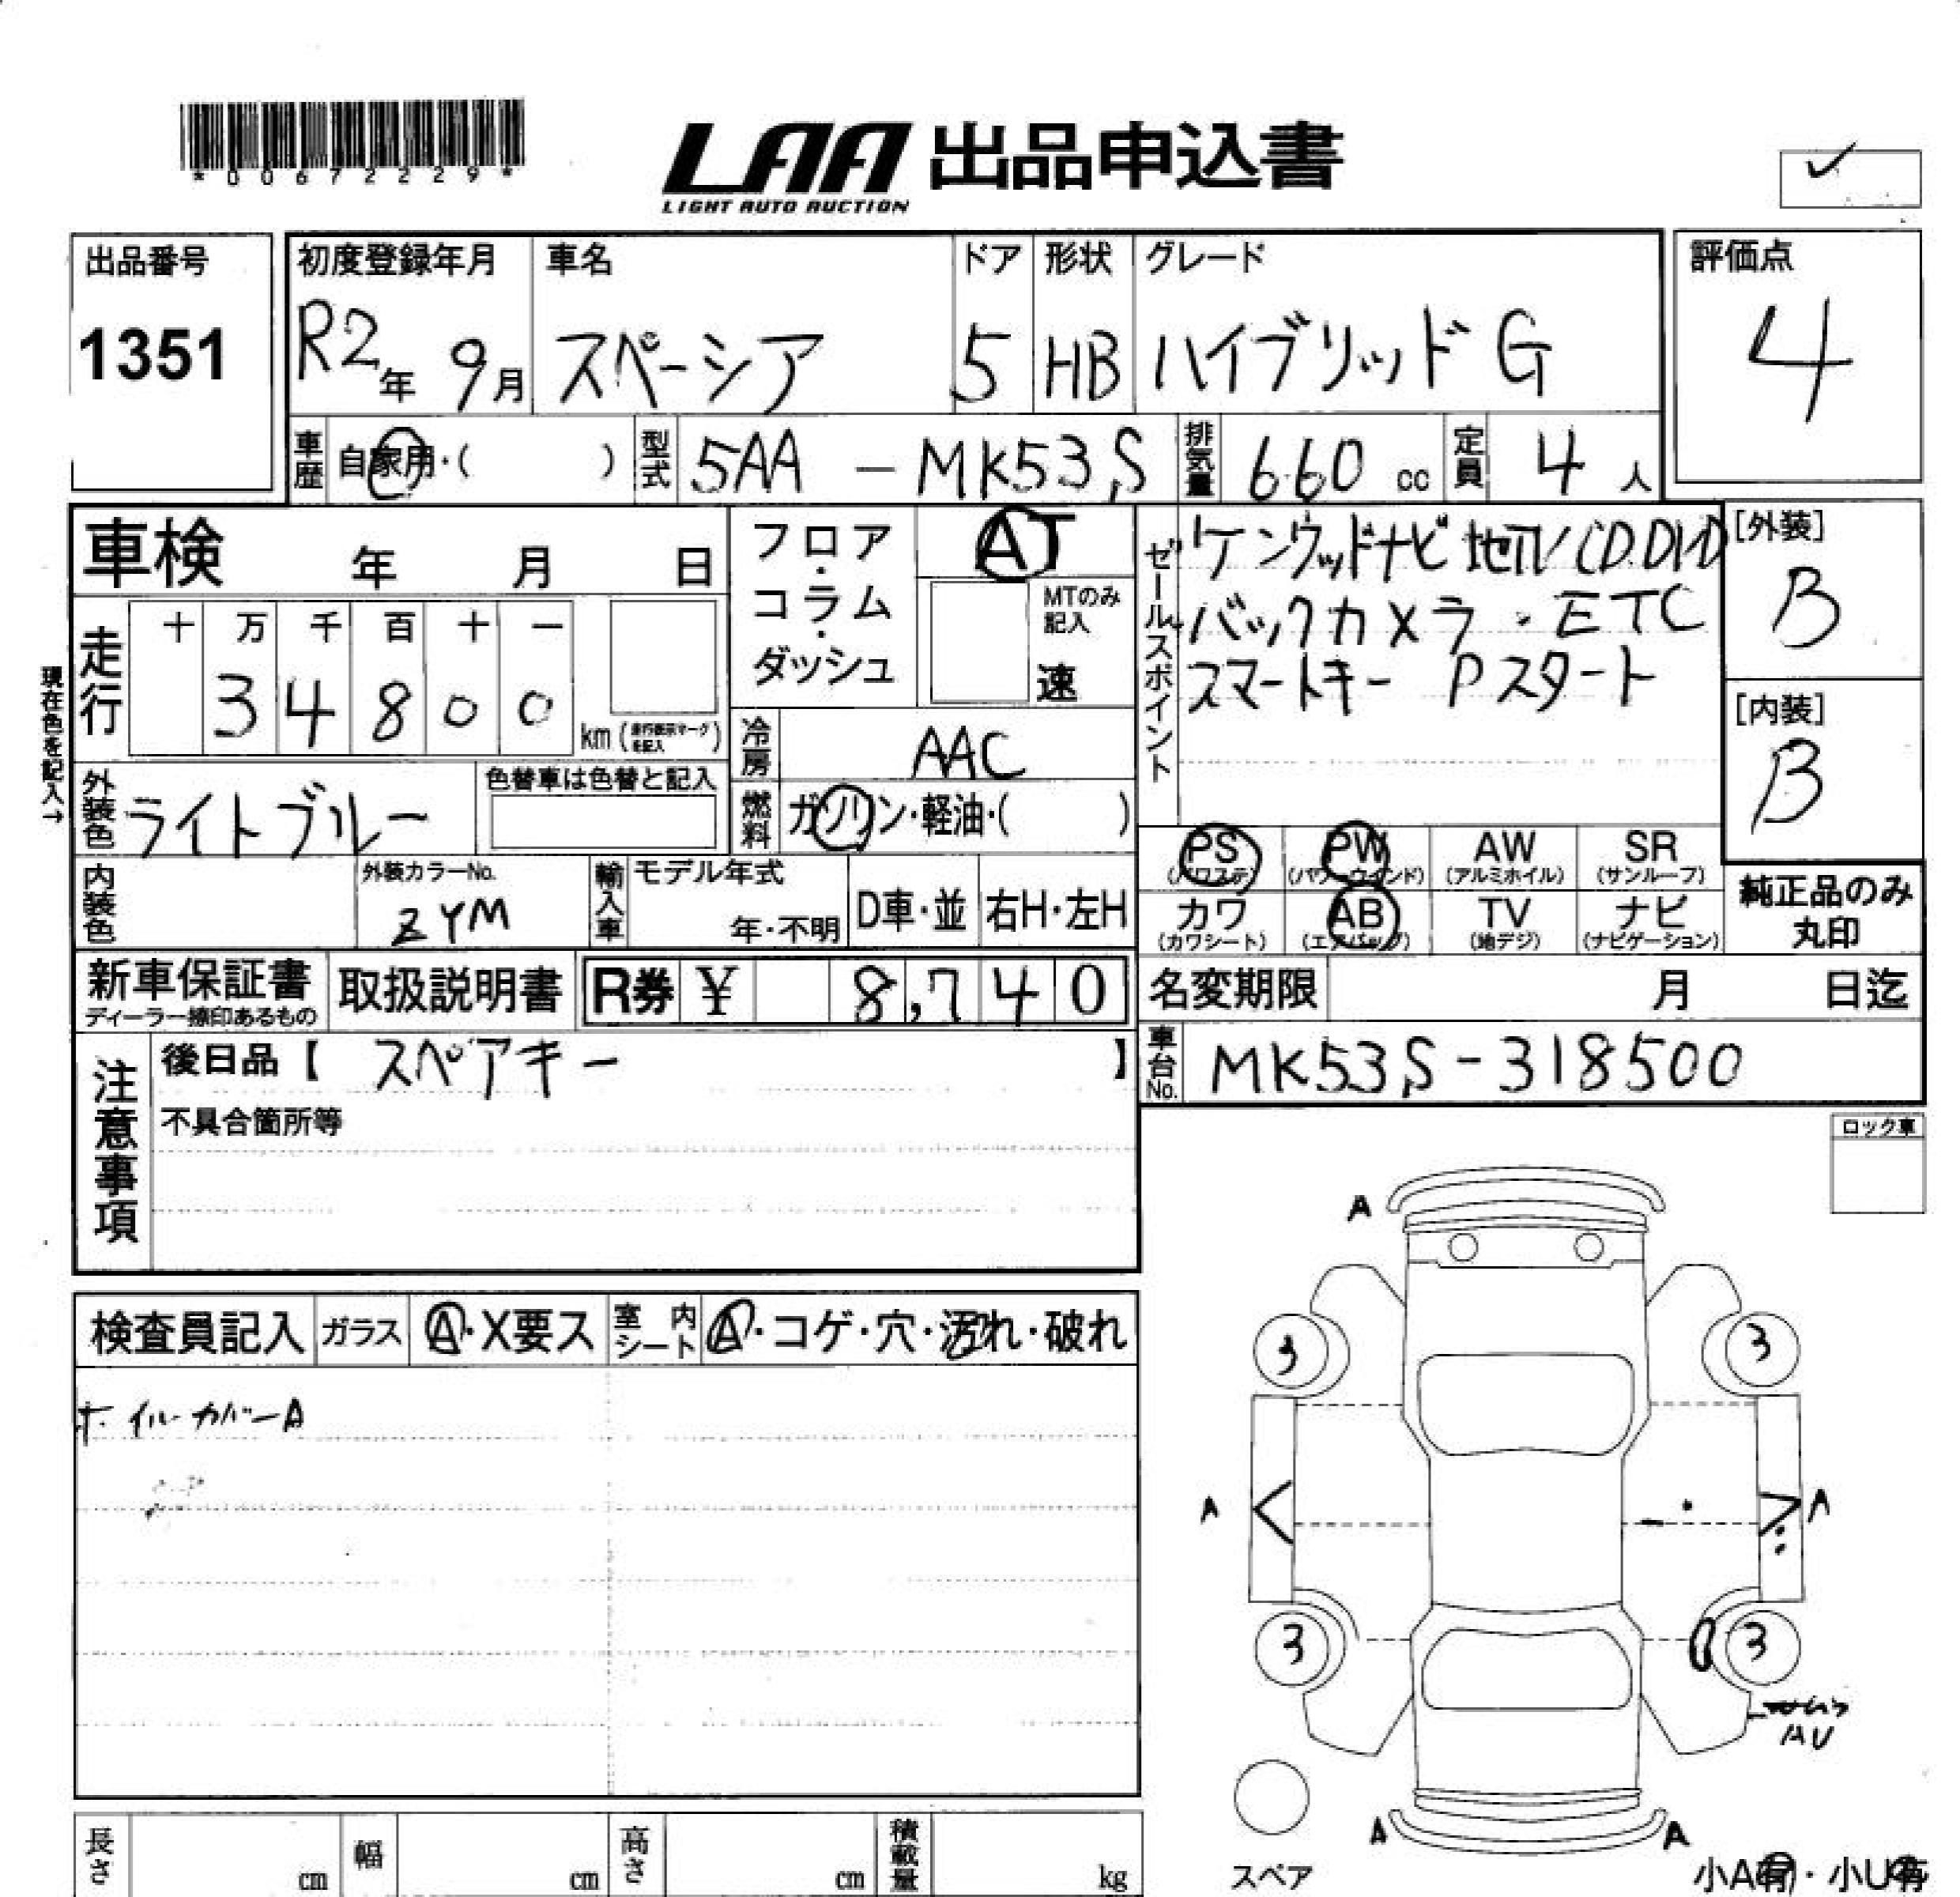 *00672229*
LAA 出品申込書
LIGHT AUTO AUCTION
出品番号 初度登録年月 車名 ドア 形状 グレード 評価点
1351 R2年 9月 スペーシア 5 HB ハイブリッド G 4
車歴 自家用・( ) 型式 5AA - MK53S 排気量 660 cc 定員 4 人
車検 年 月 日
フロア・コラム・ダッシュ AT
MTのみ記入 速
セールスポイント
ケンウッドナビ 地デジ/CD.DVD
バックカメラ・ETC
スマートキー Pスタート
[外装]
B
[内装]
B
現在色を記入→
走行 十 万 千 百 十 一
3 4 8 0 0 km (走行表示マークを記入)
冷房 AAC
外装色 ライトブルー 色替車は色替と記入
燃料 ガソリン・軽油・( )
PS (パワステ) PW (パワーウインド) AW (アルミホイル) SR (サンルーフ)
カワ (カワシート) AB (エアバッグ) TV (地デジ) ナビ (ナビゲーション)
純正品のみ丸印
内装色 外装カラーNo. ZYM 輸入車 モデル年式 年・不明 D車・並 右H・左H
新車保証書 ディーラー捺印あるもの 取扱説明書 R券 ¥ 8,740
名変期限 月 日迄
車台No. MK53S-318500
注意事項
後日品【 スペアキー 】
不具合箇所等
ロック車
検査員記入 ガラス A・X要ス 室内シート A・コゲ・穴・汚れ・破れ
ホイルカバーA
A
3 3
A A
3 3
AU
A A
スペア
小A有・小U有
長さ cm 幅 cm 高さ cm 積載量 kg